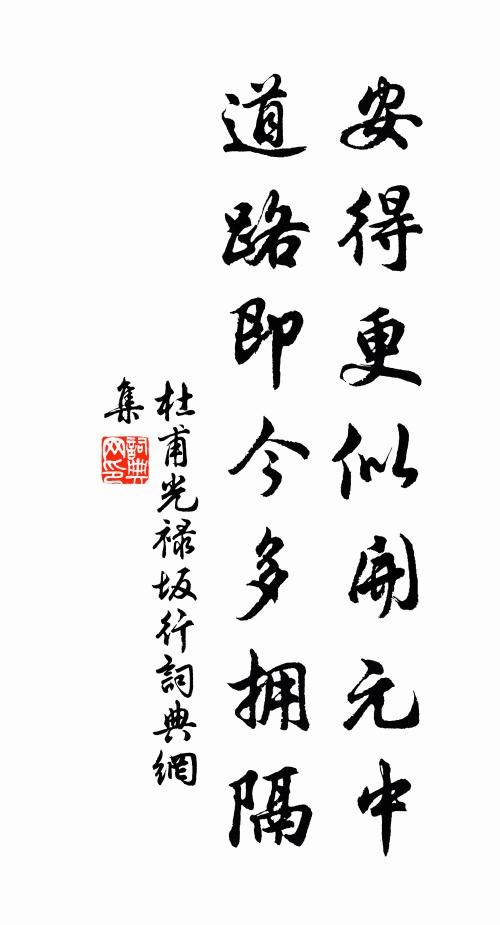 安得更似開元中
道路即今多拥隔
杜甫光禄坂行詞典網
集
詞典
网印